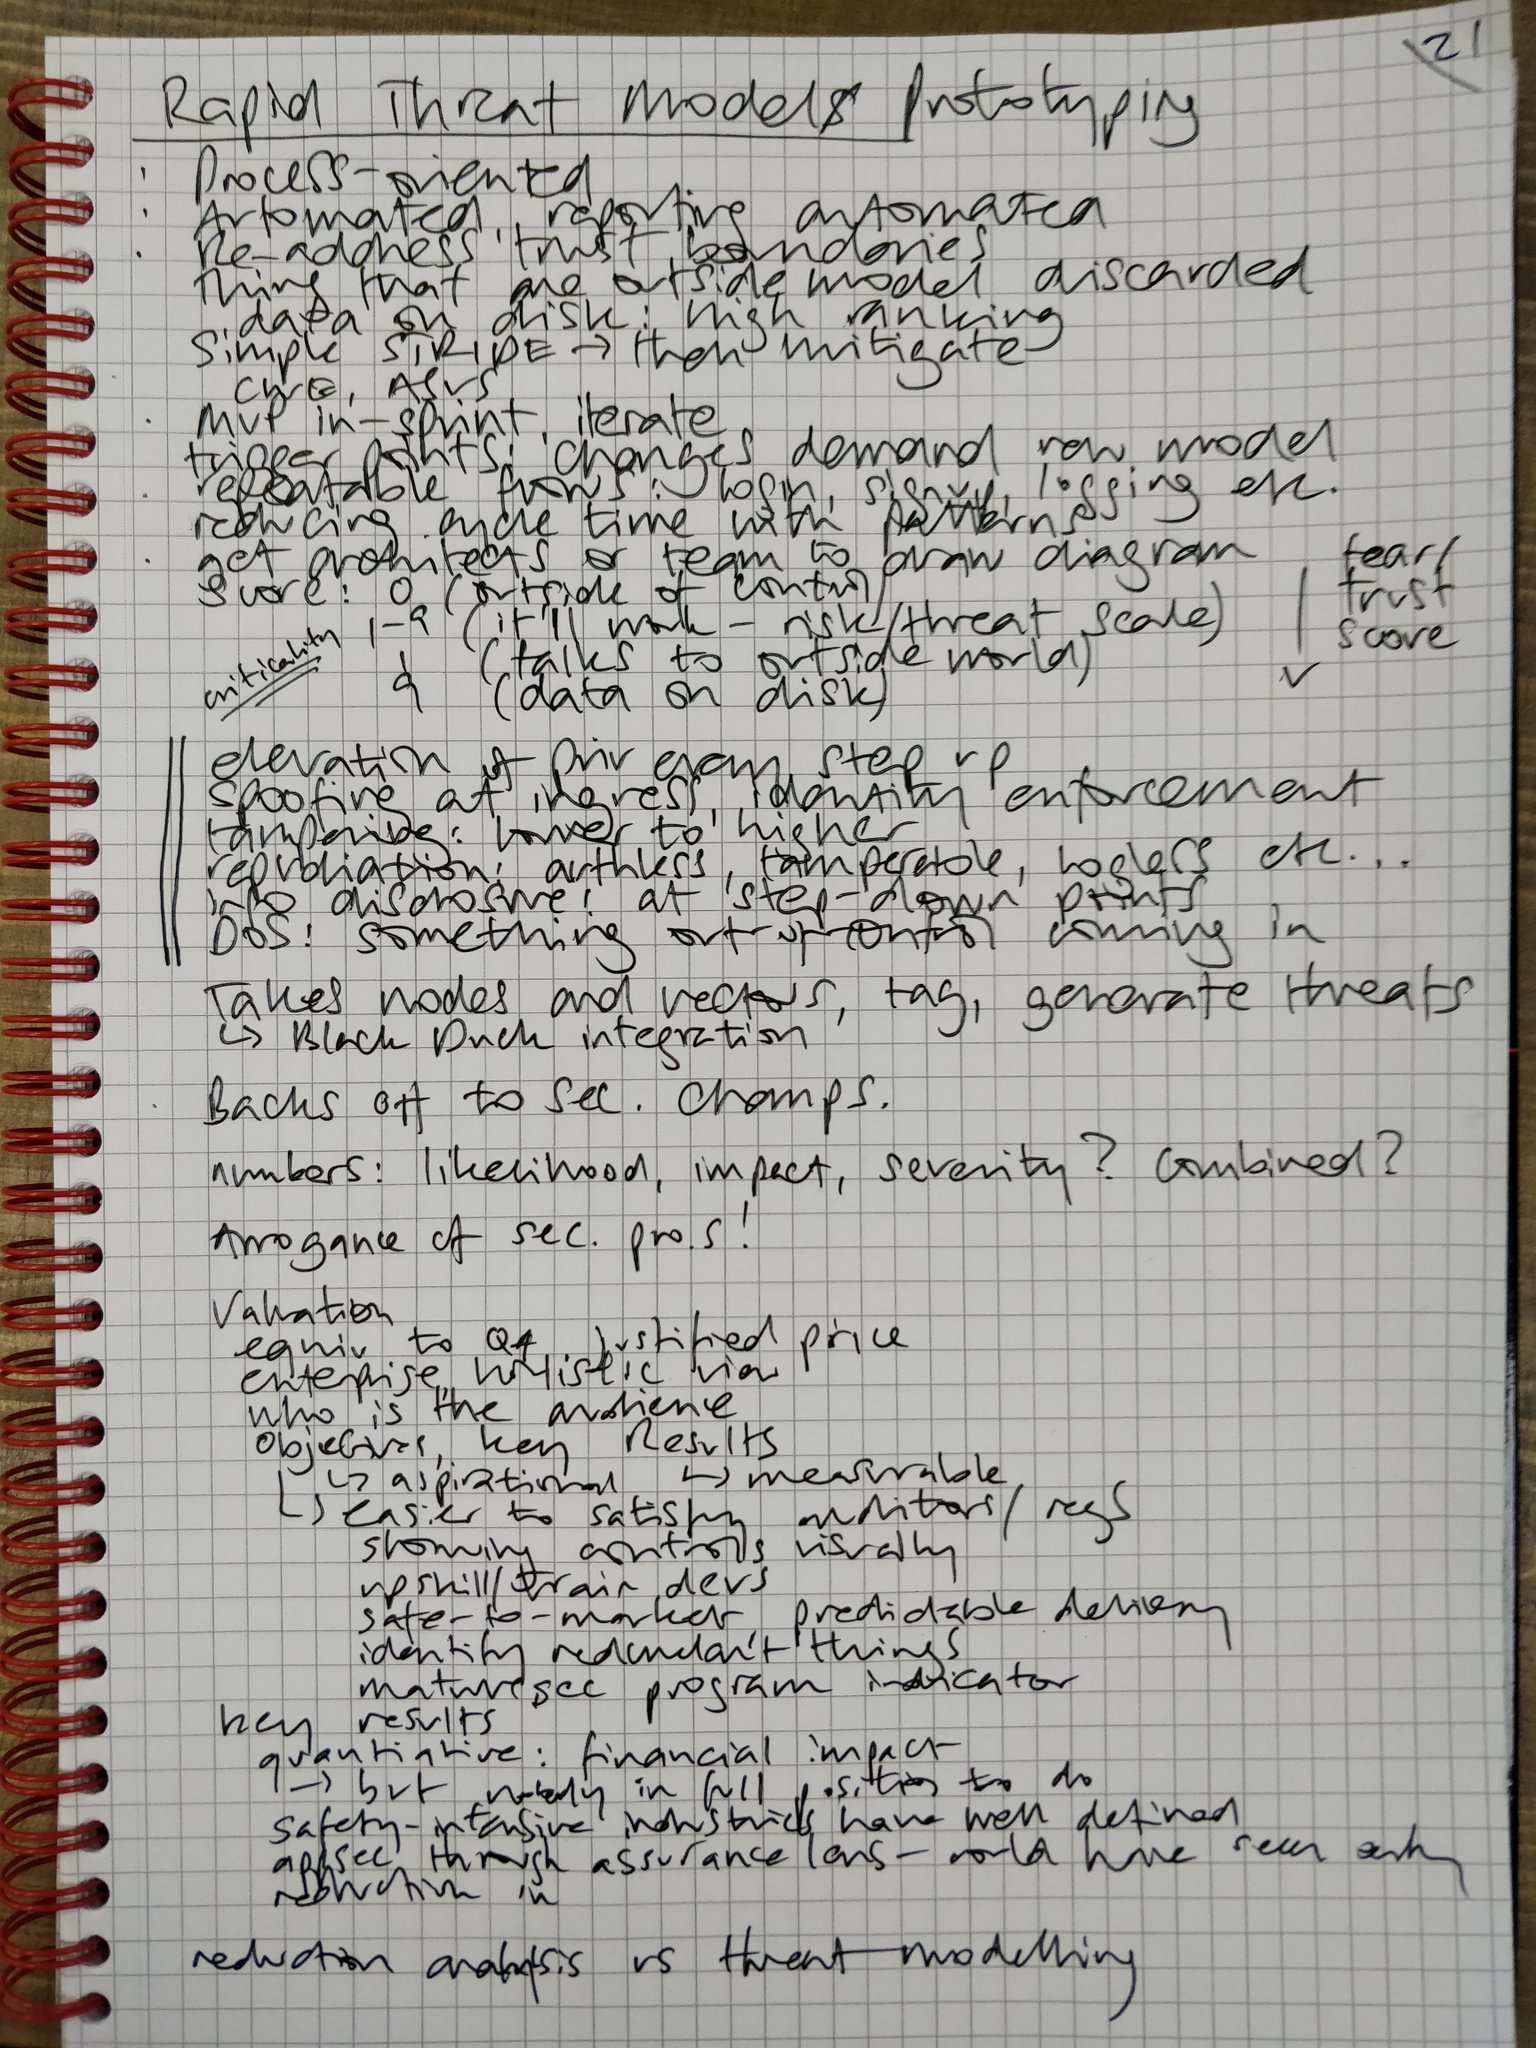 21
Rapid Threat Models Prototyping
Process-oriented
Automated, reporting automated
Re-address trust boundaries
thing that are outside model discarded
data on disk: high ranking
Simple STRIDE → then mitigate
CWE, ASVS
MVP in-sprint, iterate
trigger points: changes demand new model
repeatable flows: login, signup, logging etc.
reducing cycle time with patterns
get architects or team to draw diagram
score: 0 (outside of control)
1-9 (it'll work - risk/threat scale)
1 (talks to outside world)
9 (data on disk)
criticality
fear/
trust
score
elevation of priv every step up
Spoofing at ingress, identity enforcement
tampering: lower to higher
repudiation: authless, tamperable, logless etc...
info disclosure: at step-down points
DoS: something out of control coming in
Takes nodes and vectors, tag, generate threats
↳ Black Duck integration
Backs off to sec. champs.
numbers: likelihood, impact, severity? combined?
Arrogance of sec. pro.s!
Valuation
equiv to QA justified price
enterprise, holistic view
who is the audience
Objectives, Key Results
↳ aspirational ↳ measurable
↳ easier to satisfy auditors/regs
showing controls visually
upskill/train devs
safer-to-market, predictable delivery
identify redundant things
mature sec program indicator
key results
quantiative: financial impact
→ but nobody in full position to do
safety-intensive industries have well defined
appsec through assurance lens - world have seen
reduction in
reduction analysis vs threat modelling